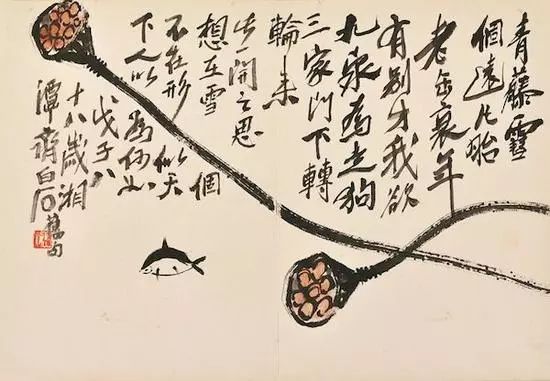 青藤雪
個遠凡胎
老缶衰年
有別才我欲
九泉為走狗
三家門下轉
輪来
此一開之思
想在雪個
不在形似天
下人以為何如
戊子八
十八歲湘
潭齊白石舊句